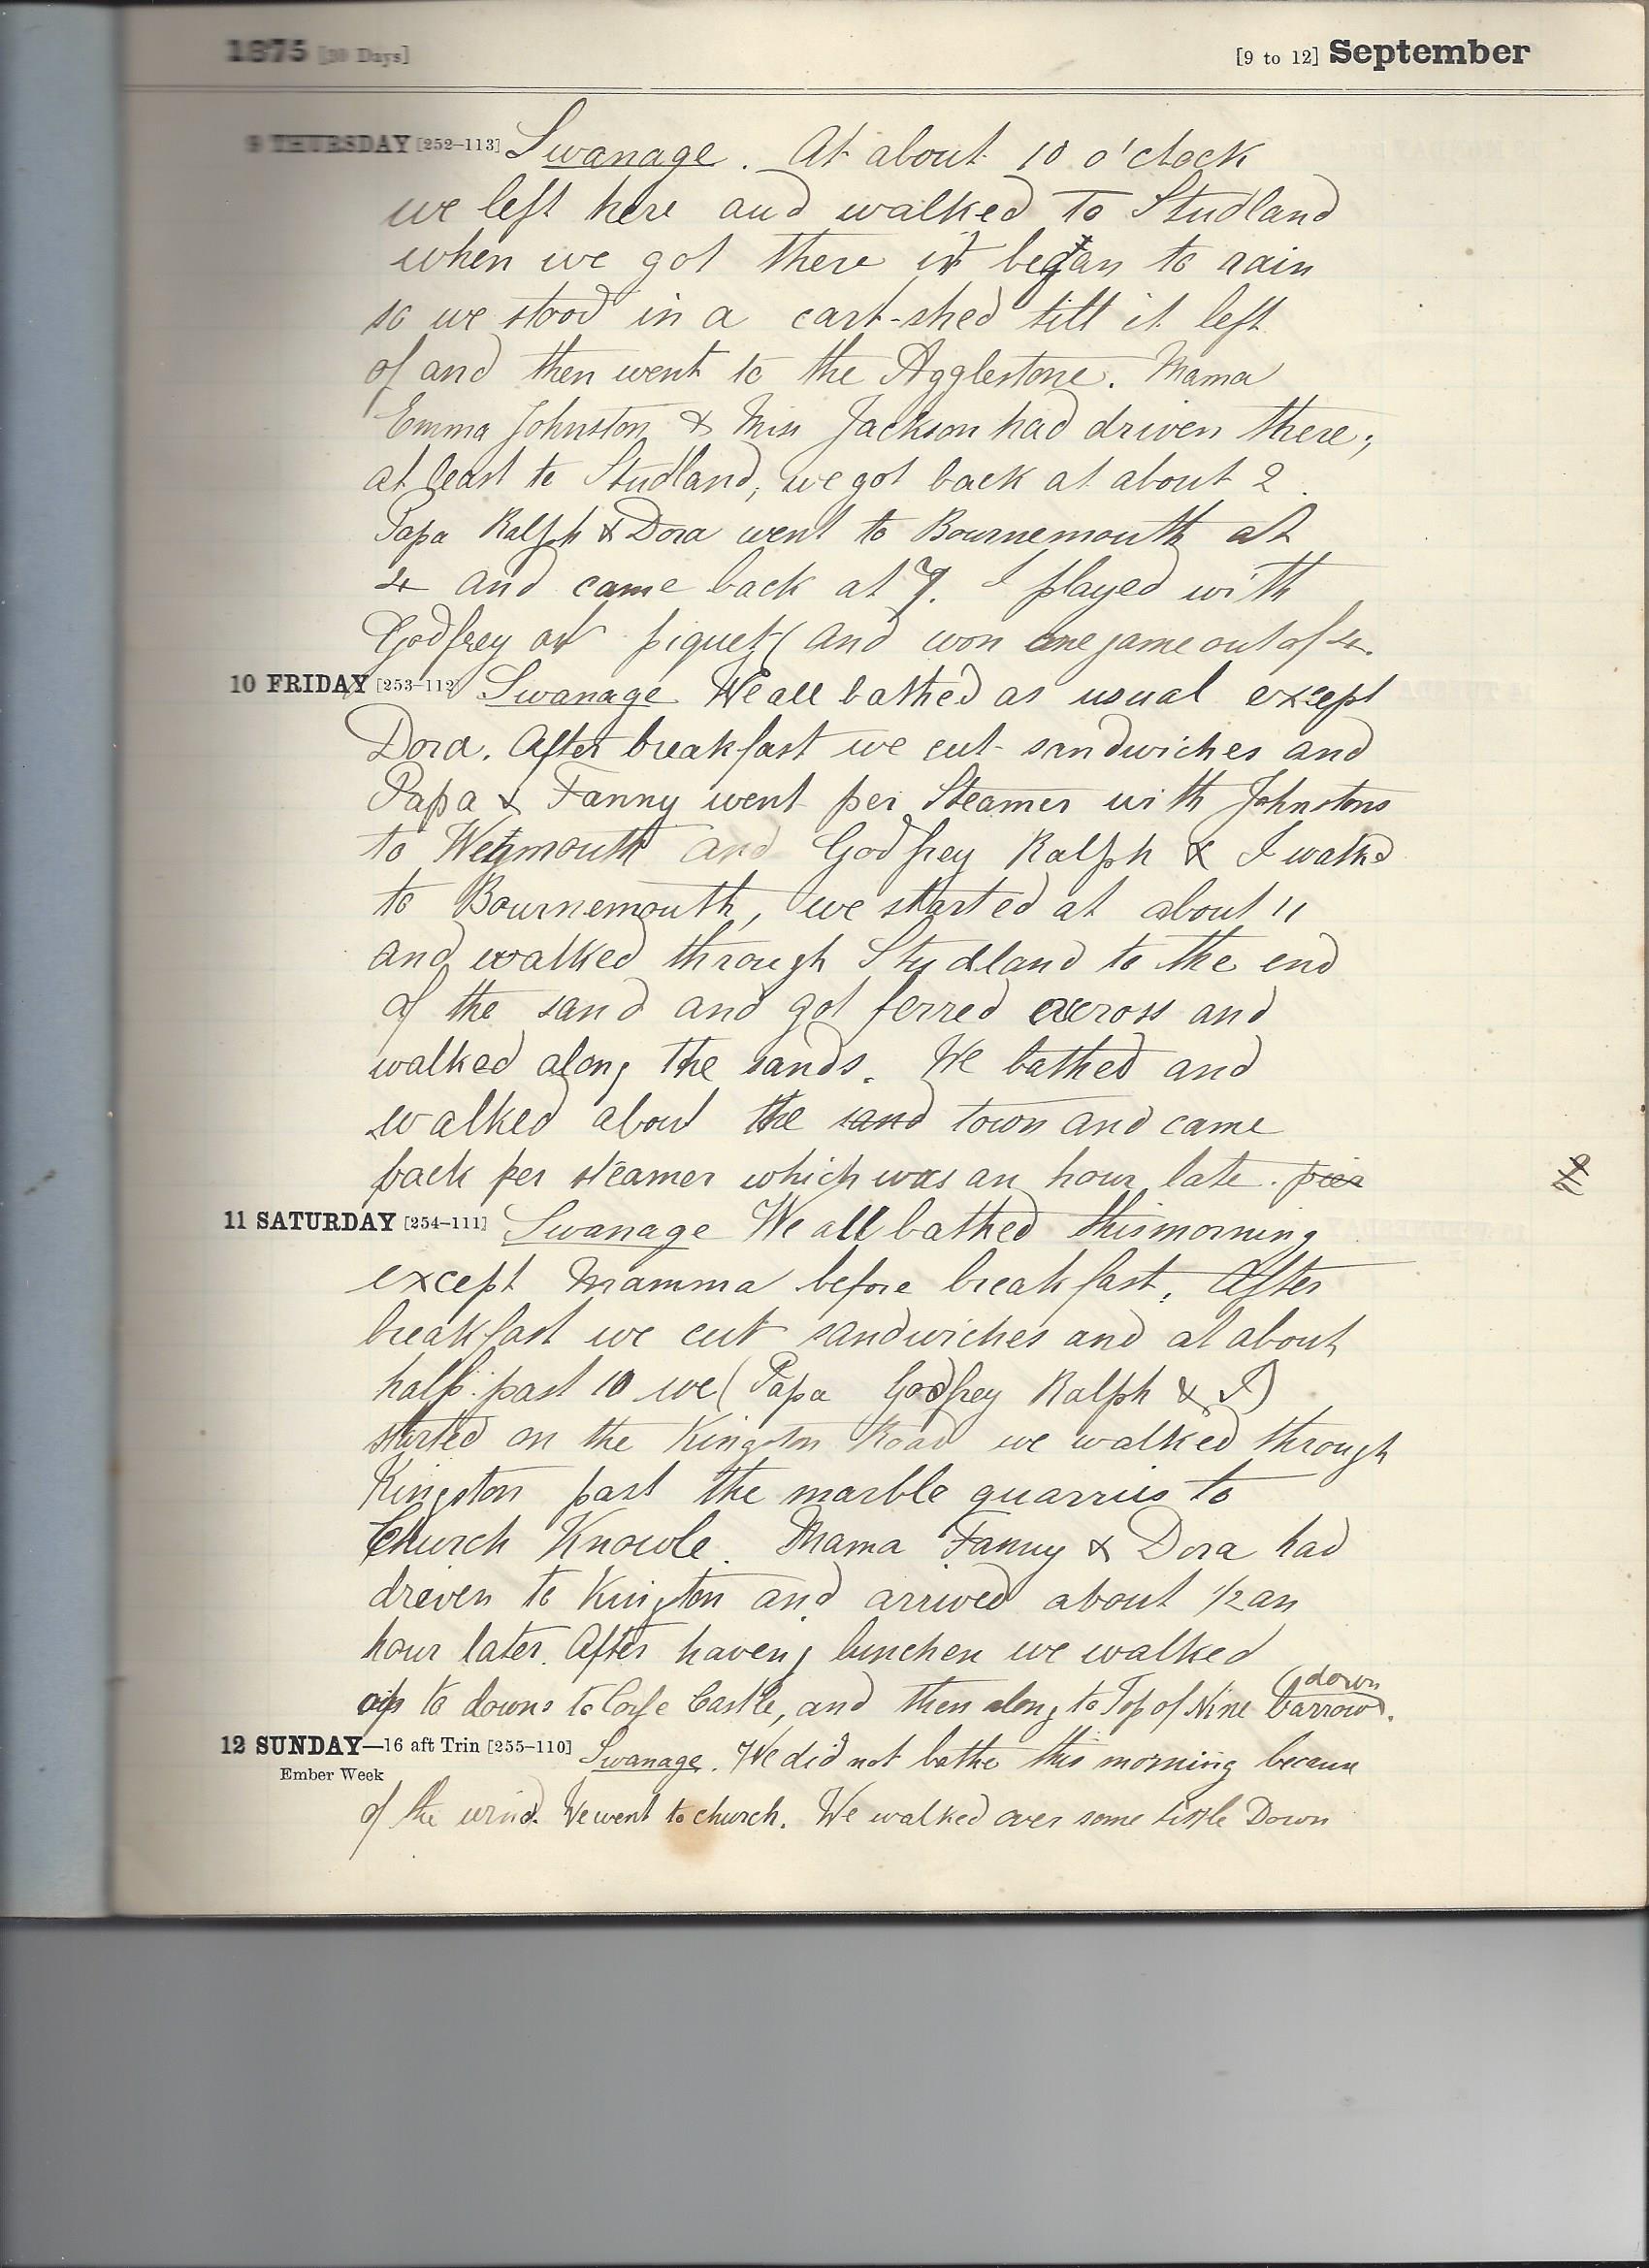 1875 [30 Days] [9 to 12] September
9 THURSDAY [252–113] Swanage. At about 10 o'clock
we left here and walked to Studland
when we got there it began to rain
so we stood in a cart-shed till it left
of and then went to the Agglestone. Mama
Emma Johnston & Miss Jackson had driven there;
at least to Studland, we got back at about 2.
Papa Ralph & Dora went to Bournemouth at
4 and came back at 7. I played with
Godfrey at piquet (and won one game out of 4.
10 FRIDAY [253–112] Swanage We all bathed as usual except
Dora. After breakfast we cut sandwiches and
Papa & Fanny went per Steamer with Johnstons
to Weymouth and Godfrey Ralph & I walked
to Bournemouth, we started at about 11
and walked through Studland to the end
of the sand and got ferred across and
walked along the sands. We bathed and
walked about the sand town and came
back per steamer which was an hour late. pier
11 SATURDAY [254–111] Swanage We all bathed this morning
except Mamma before breakfast. After
breakfast we cut sandwiches and at about
half past 10 we (Papa Godfrey Ralph & I)
started on the Kingston Road we walked through
Kingston past the marble quarries to
Church Knowle. Mama Fanny & Dora had
dreven to Kington and arrived about 1/2 an
hour later. After haveng lunchen we walked
up to downs to Corfe Castle, and then along to Top of Nine barrow down.
12 SUNDAY—16 aft Trin [255–110] Swanage. We did not bathe this morning because
Ember Week
of the wind. We went to church. We walked over some little Down